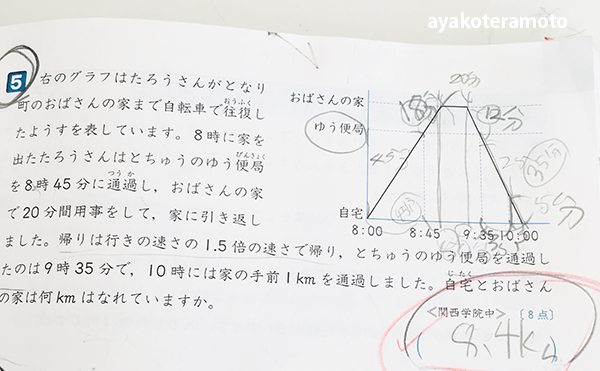 ayakoteramoto
5 右のグラフはたろうさんがとなり
町のおばさんの家まで自転車で往復し
おうふく
たようすを表しています。8時に家を
出たたろうさんはとちゅうのゆう便局
びんきょく
を8時45分に通過し，おばさんの家
つうか
で20分間用事をして，家に引き返し
ました。帰りは行きの速さの1.5倍の速さで帰り，とちゅうのゆう便局を通過し
たのは9時35分で，10時には家の手前1kmを通過しました。自宅とおばさん
じたく
の家は何kmはなれていますか。
〈関西学院中〉〔8点〕
8.4km
20分
おばさんの家
18分
12分
ゆう便局
45分
35分
自宅
8:00 8:45 9:35 10:00